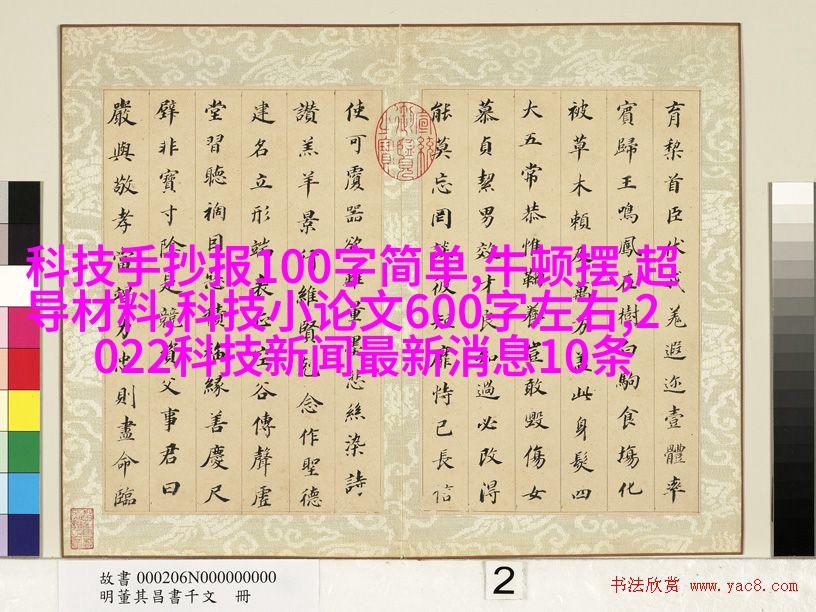 育棃首臣伏戎羌遐迩壹體率
賓歸王鳴鳳在樹白駒食場化
被草木賴及萬方蓋此身髮四
大五常恭惟鞠養豈敢毀傷女
慕貞絜男效才良知過必改得
能莫忘罔談彼短靡恃己長信
使可覆器欲難量墨悲絲染詩
讚羔羊景行維賢克念作聖德
建名立形端表正空谷傳聲虛
堂習聽禍因惡積福緣善慶尺
璧非寶寸陰是競資父事君曰
嚴與敬孝當竭力忠則盡命臨
科技手抄报100字简单,牛顿摆,超
导材料,科技小论文600字左右,2
022科技新闻最新消息10条
故書 000206N000000000
明董其昌書千文 冊
2
书法欣赏 www.yac8.com